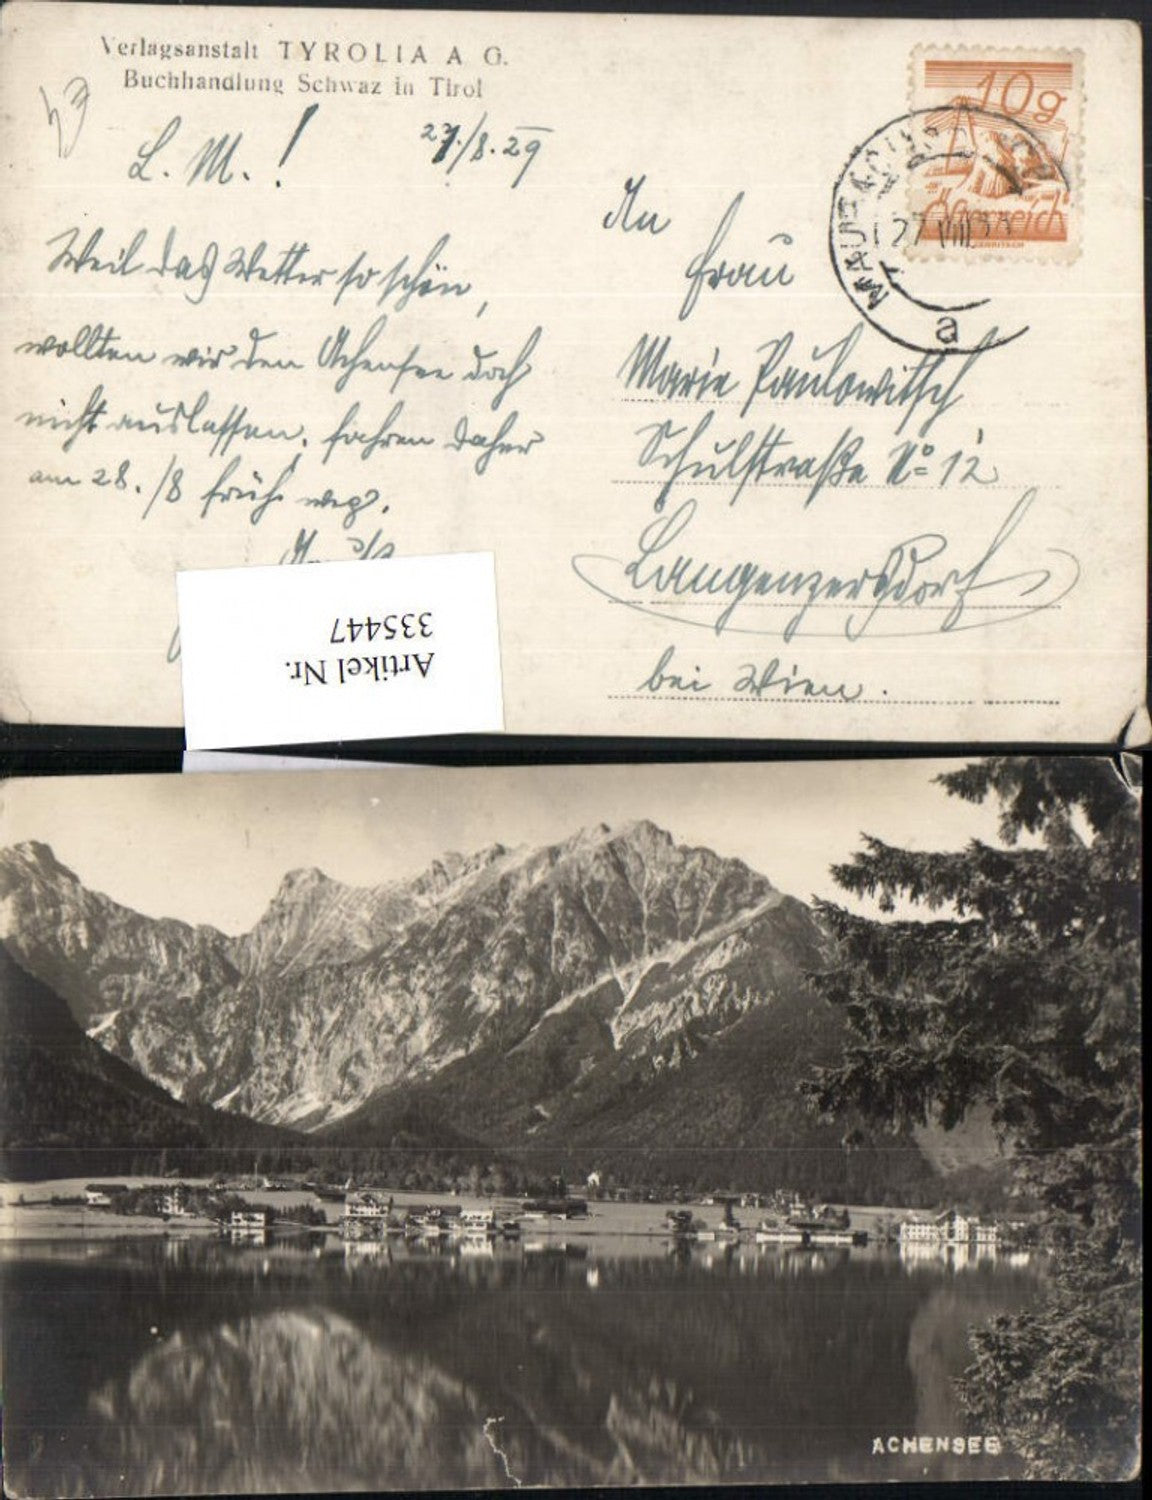 Verlagsanstalt TYROLIA A G.
Buchhandlung Schwaz in Tirol
L. M.!
27./8.29
Weil das Wetter so schön,
wollten wir den Achensee doch
nicht auslassen, fahren daher
am 28./8 früh weg.
10g
Österreich
MAUT
27 VIII
a
An
Frau
Marie Paulowitsch
Schulstraße No 12
Langenzersdorf
bei Wien.
Artikel Nr.
335447
ACHENSEE